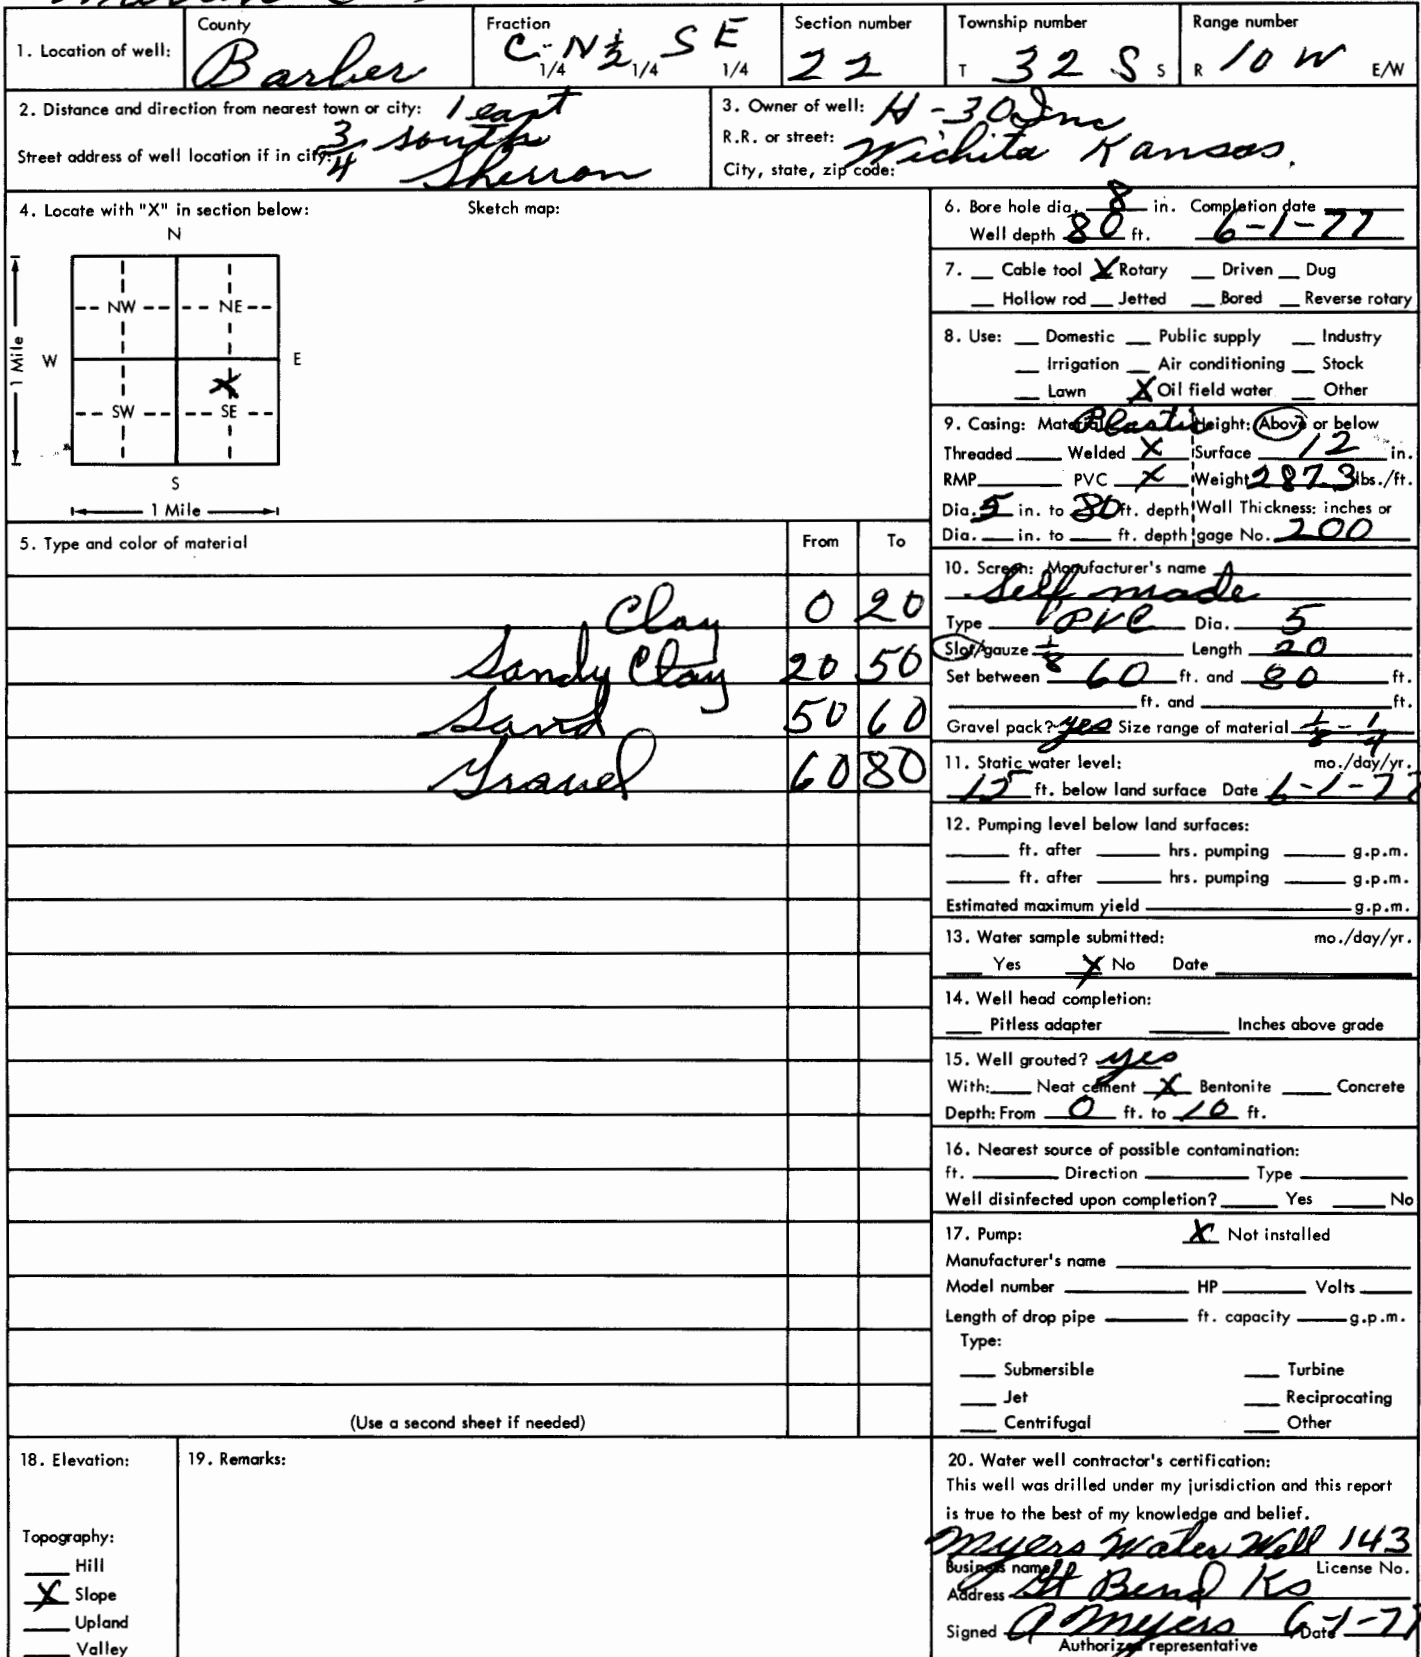 County Fraction Section number Township number Range number
1. Location of well: Barber C-N½ SE 1/4 1/4 1/4 22 T 32 S S R 10 W E/W
2. Distance and direction from nearest town or city: 1 east
3/4 south
Street address of well location if in city:
3. Owner of well: H-30 Inc
R.R. or street: Wichita Kansas.
City, state, zip code:
4. Locate with "X" in section below: Sketch map:
N
NW NE
W E
1 Mile
X
SW SE
S
1 Mile
5. Type and color of material From To
Clay 0 20
Sandy Clay 20 50
Sand 50 60
Gravel 60 80
(Use a second sheet if needed)
6. Bore hole dia. 8 in. Completion date
Well depth 80 ft. 6-1-77
7. __ Cable tool X Rotary __ Driven __ Dug
__ Hollow rod __ Jetted __ Bored __ Reverse rotary
8. Use: __ Domestic __ Public supply __ Industry
__ Irrigation __ Air conditioning __ Stock
__ Lawn X Oil field water __ Other
9. Casing: Material Plastic Height: Above or below
Threaded __ Welded X Surface 12 in.
RMP __ PVC X Weight 287.3 lbs./ft.
Dia. 5 in. to 80 ft. depth Wall Thickness: inches or
Dia. __ in. to __ ft. depth gage No. 200
10. Screen: Manufacturer's name
Self made
Type PVC Dia. 5
Slot/gauze 1/8 Length 20
Set between 60 ft. and 80 ft.
__ ft. and __ ft.
Gravel pack? yes Size range of material 1/8 - 1/4
11. Static water level: mo./day/yr.
15 ft. below land surface Date 6-1-77
12. Pumping level below land surfaces:
__ ft. after __ hrs. pumping __ g.p.m.
__ ft. after __ hrs. pumping __ g.p.m.
Estimated maximum yield __ g.p.m.
13. Water sample submitted: mo./day/yr.
__ Yes X No Date
14. Well head completion:
__ Pitless adapter __ Inches above grade
15. Well grouted? yes
With: __ Neat cement X Bentonite __ Concrete
Depth: From 0 ft. to 10 ft.
16. Nearest source of possible contamination:
ft. __ Direction __ Type __
Well disinfected upon completion? __ Yes __ No
17. Pump: X Not installed
Manufacturer's name
Model number __ HP __ Volts __
Length of drop pipe __ ft. capacity __ g.p.m.
Type:
__ Submersible __ Turbine
__ Jet __ Reciprocating
__ Centrifugal __ Other
18. Elevation:
Topography:
__ Hill
X Slope
__ Upland
__ Valley
19. Remarks:
20. Water well contractor's certification:
This well was drilled under my jurisdiction and this report
is true to the best of my knowledge and belief.
Myers Water Well 143
Business name License No.
Address Gt Bend Ks
Signed A Myers Date 6-1-77
Authorized representative